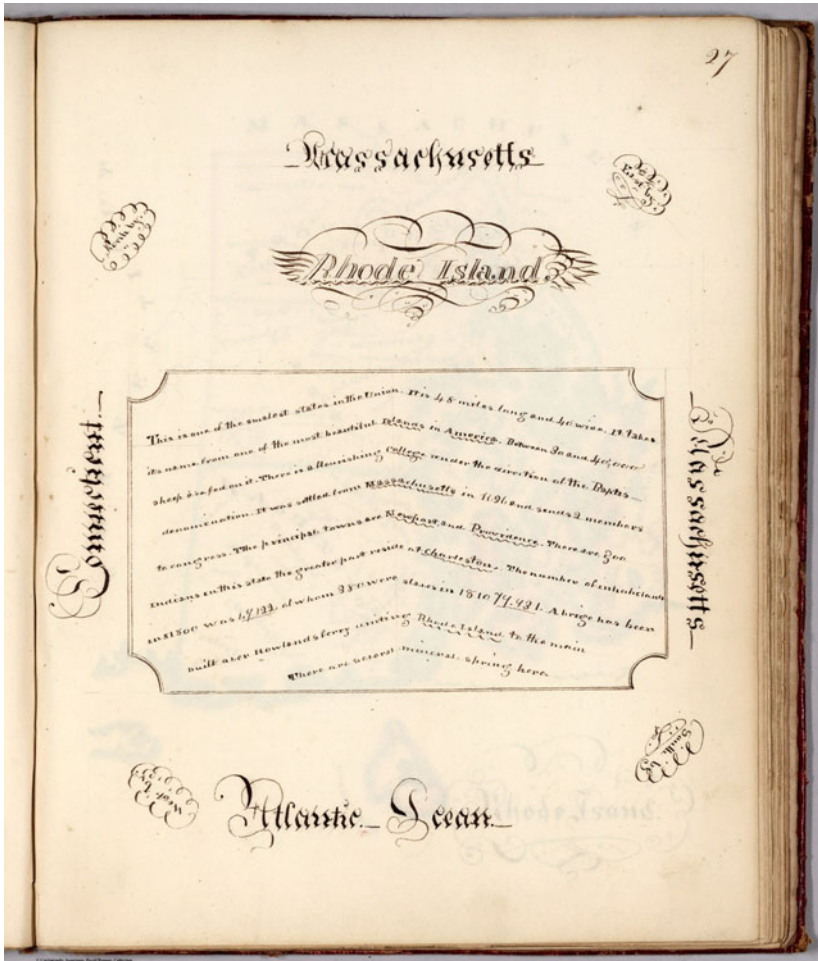 27
Massachusetts
North by
East by
Rhode Island.
This is one of the smalest states in the Union. It is 48 miles long and 40 wide. It takes
its name from one of the most beautiful Islands in America. Between 30 and 40,000
sheep are fed on it. There is a flourishing College under the direction of the Baptis
denomination. It was settled from Massachusetts in and sends 2 members
to congress. The principal towns are Newport and Providence. There are
Indians in this state the greater part reside at Charleston. The number of inhabitants
in 1800 was of whom 380 were slaves in 1810 A brige has been
built over Howlands ferry uniting Rhode Island to the main
There are several mineral spring here.
Connecticut
Massachusetts
West by
South by
Atlantic Ocean